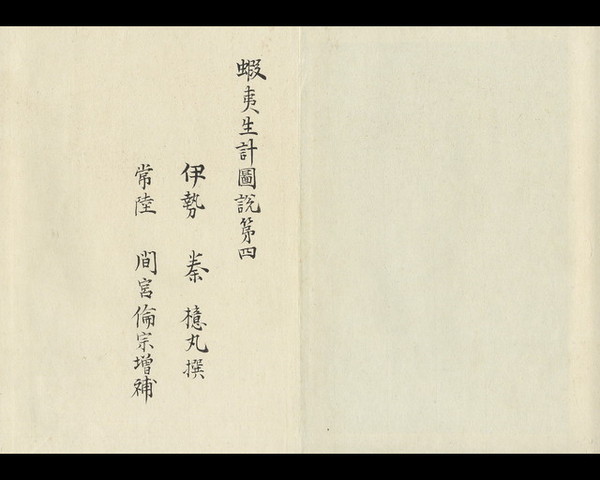 蝦夷生計圖說第四
伊勢 秦 檍丸撰
常陸 間宮倫宗增補